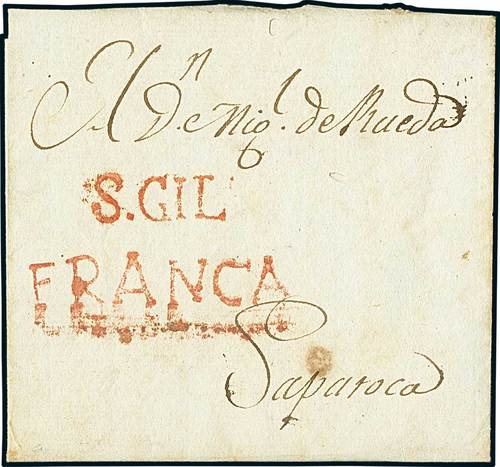 A Dn. Migl. de Rueda
S.GIL
FRANCA
Saparoca